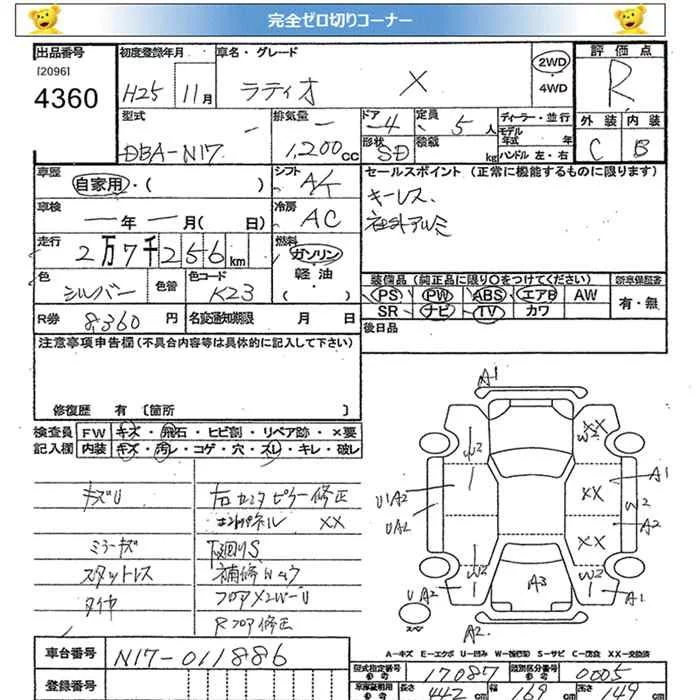 完全ゼロ切りコーナー
出品番号 初度登録年月 車名・グレード 評価点
[2096] 4360 H25 11月 ラティオ X 2WD ・4WD R
型式 排気量 ドア 4 定員 5人 ディーラー・並行 外装 内装
DBA-N17 1,200cc 形状 SD 積載 kg モデル年式 年 ハンドル 左・右 C B
車歴 シフト セールスポイント (正常に機能するものに限ります)
自家用・( ) A/T キーレス、
車検 冷房 社外アルミ
年 月( 日) AC
走行 燃料
2万7千256km ガソリン
色 色替 色コード 軽油 装備品 (純正品に限り○をつけてください) 新車保証書
シルバー K23 ・( ) PS PW ABS エアB AW 有・無
R券 8,360円 名変通知期限 月 日 SR ナビ TV カワ
注意事項申告欄 (不具合内容等は具体的に記入して下さい) 後日品
修復歴 有 〔箇所 〕
検査員 FW キズ・飛石・ヒビ割・リペア跡・×要
記入欄 内装 キズ・汚レ・コゲ・穴・スレ・キレ・破レ
キズU 右センタピラー修正
XX
ミラーキズ 下廻りS
スタットレス 補修Wムラ
タイヤ フロアメンW-U
Rフロア修正
A1
W2 XX W2
U1 A2 XX A1
UA2 W2
XX A2
UA2 W2 A3 W2 A1
スペ A2
A-キズ E-エクボ U-凹み W-補修跡 S-サビ C-腐食 XX-交換済
車台番号 N17-011886
登録番号
型式指定番号 参考 17087 類別区分番号 参考 0005
車庫証明用 参考 長さ 442cm 幅 169cm 高さ 149cm